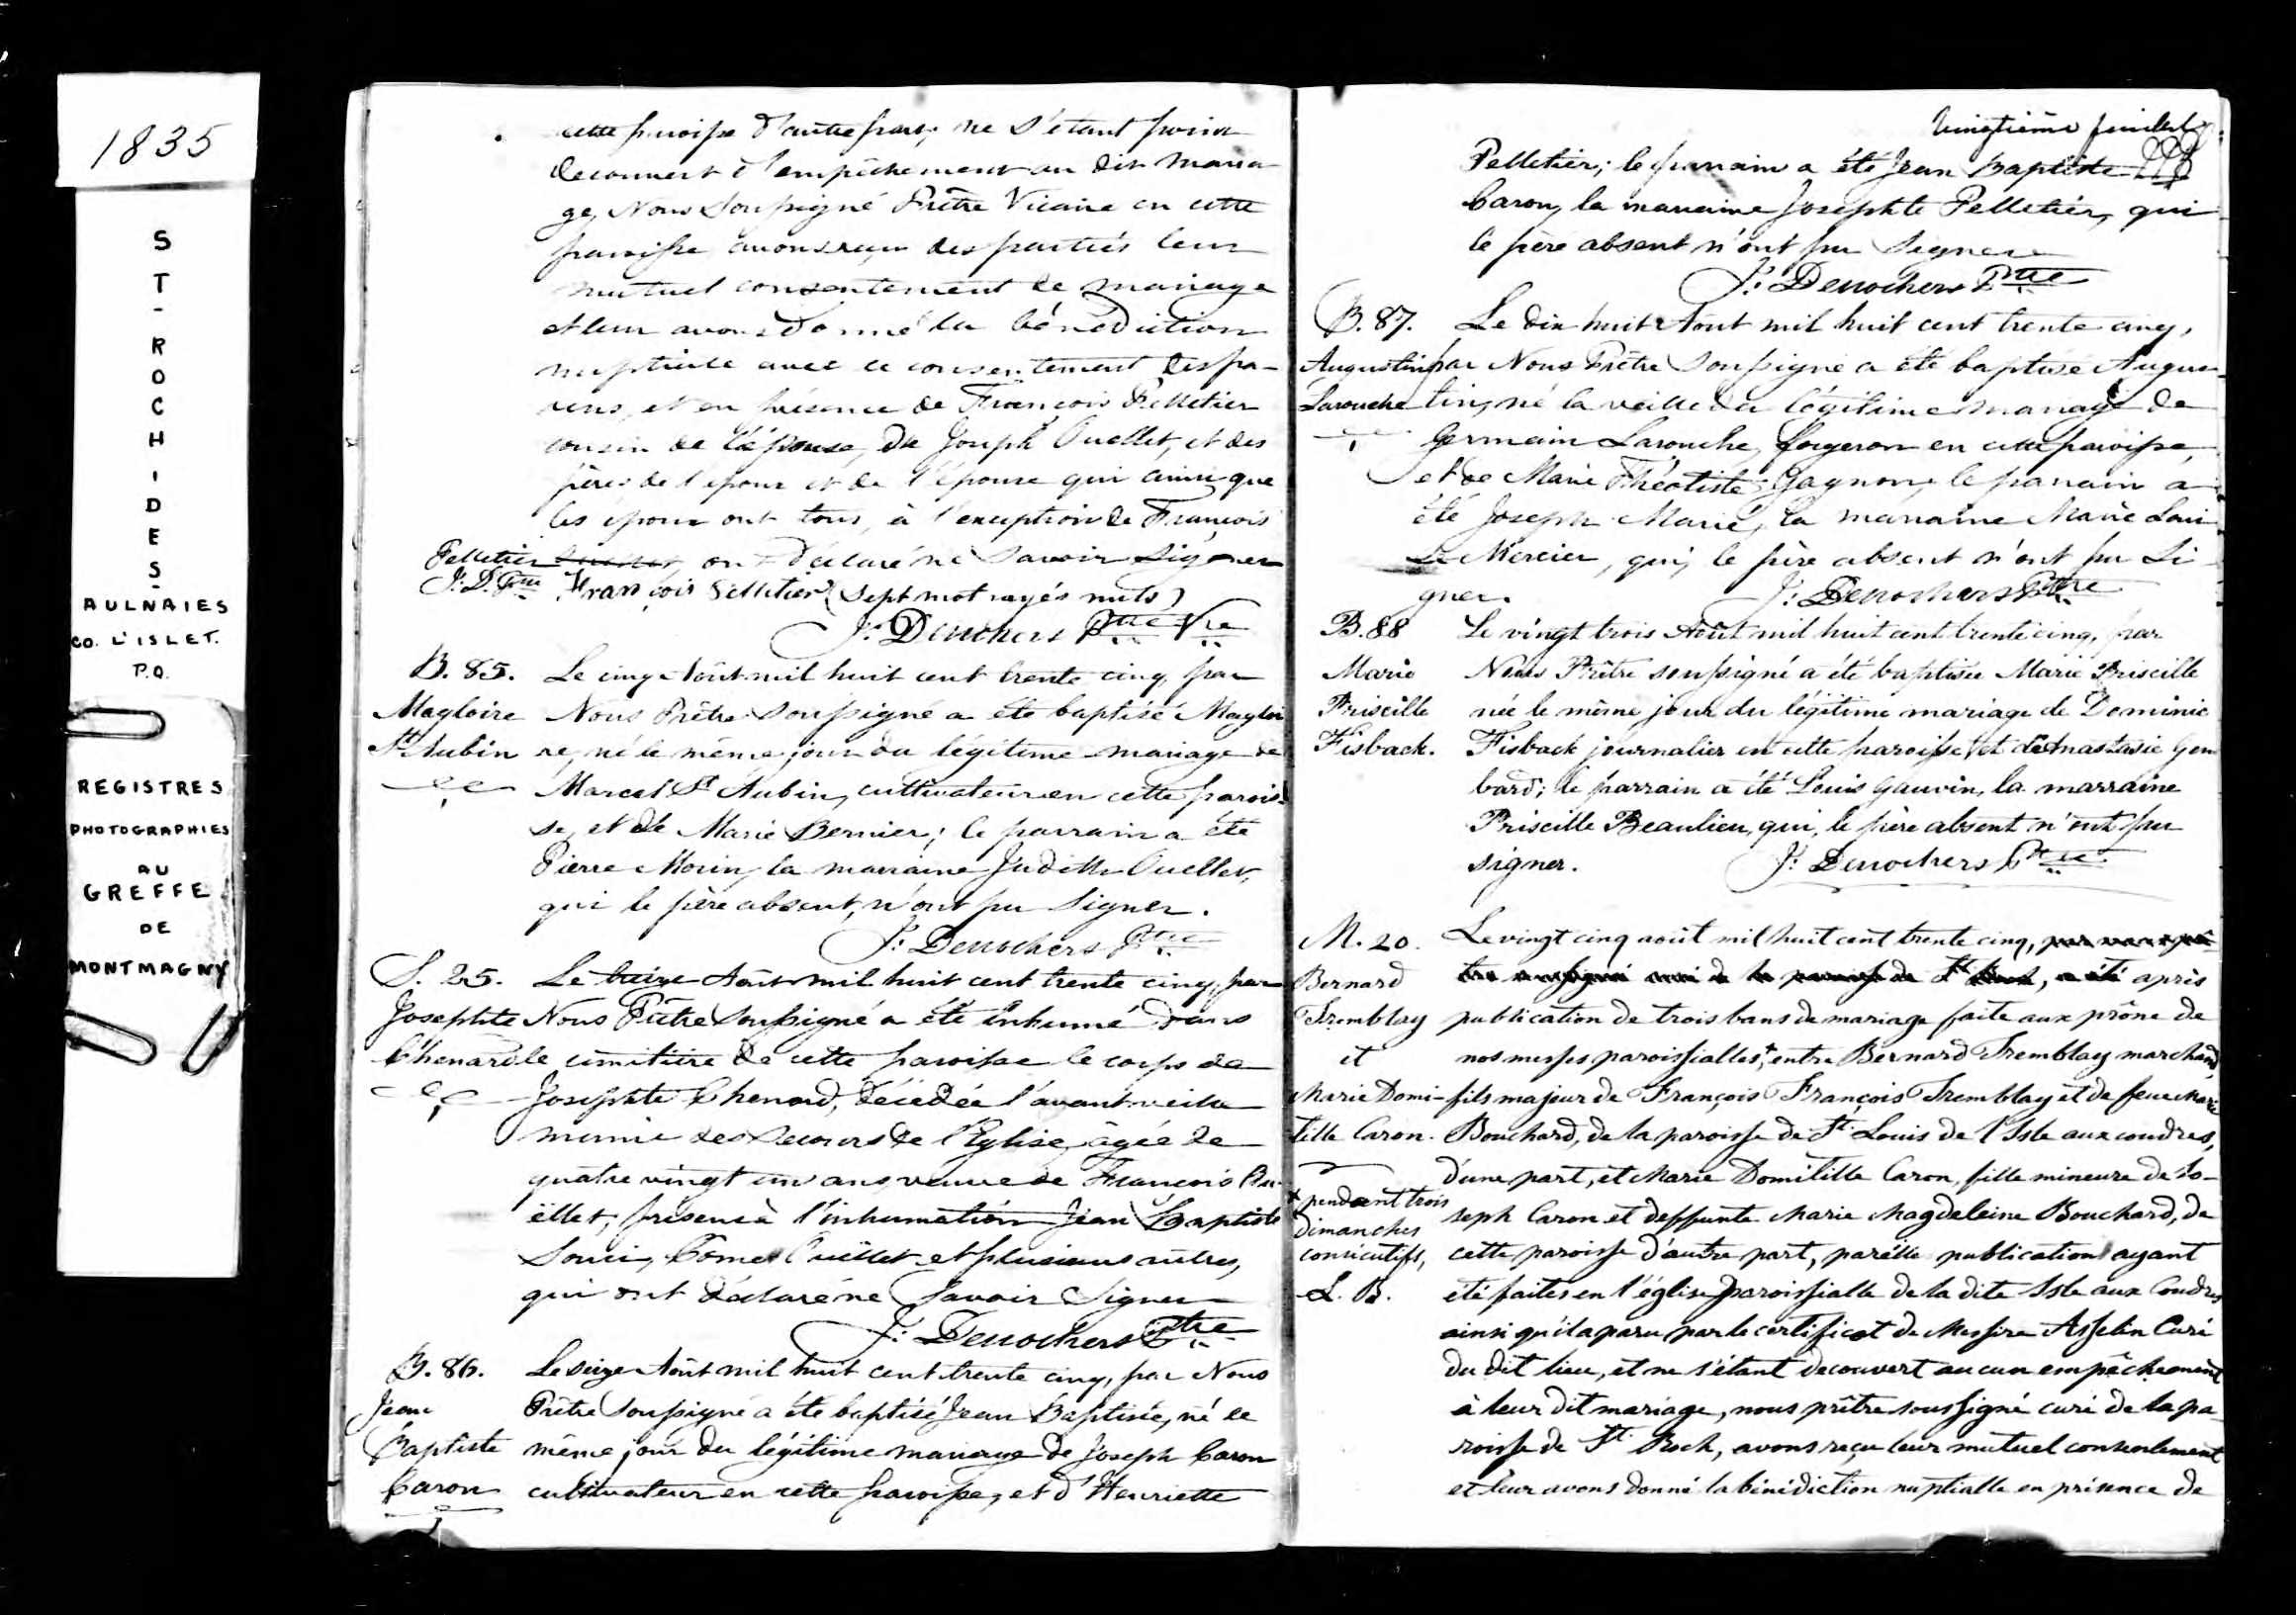 1835
ST-ROCH-DES-
AULNAIES
CO. L'ISLET.
P.Q.
REGISTRES
PHOTOGRAPHIES
AU
GREFFE
DE
MONTMAGNY
cette paroisse d'autre part; ne s'étant point
decouvert d'empêchement au dit maria-
ge, Nous Soussigné Prêtre Vicaire en cette
paroisse avons reçu des parties leur
mutuel consentement de mariage
et leur avons donné la bénédiction
nuptiale avec le consentement des pa-
rens, et en présence de François Pelletier
cousin de l'épouse, de Joseph Ouellet, et des
pères de l'epoux et de l'épouse qui ainsi que
les epoux ont tous, à l'exception de François
Pelletier, ont déclaré ne savoir signer
J. D. Ptre François Pelletier (Sept mot rayés nuls)
J: Derrochers Ptre Vre
B. 85. Le cinq Août mil huit cent trente cinq, par
Magloire Nous Prêtre Soussigné a été baptisé Magloi
St Aubin re, né le même jour du légitime mariage de
Marcel St Aubin, cultivateur en cette parois-
se, et de Marie Bernier; le parrain a été
Pierre Morin, la marraine Judith Ouellet,
qui le père absent, n'ont pu signer.
J: Derrochers Ptre
S. 25. Le treize Août mil huit cent trente cinq, par
Josephte Nous Prêtre Soussigné a été inhumé dans
Chenard le cimitière de cette paroisse le corps de
Josephte Chenard, décédée l'avant veille
munie des secours de l'Eglise, âgée de
quatre vingt un ans, veuve de François Ou-
ëllet; présens à l'inhumation Jean Baptiste
Souci, Côme Ouëllet et plusieurs autres,
qui ont déclaré ne savoir signer
J: Derrochers Ptre
B. 86. Le seize Août mil huit cent trente cinq, par Nous
Jean Prêtre Soussigné a été baptisé Jean Baptiste, né le
Baptiste même jour du légitime mariage de Joseph Caron
Caron cultivateur en cette paroisse, et d'Henriette
Vingtième feuillet
Pelletier; le parrain a été Jean Baptiste
Caron, la marraine Josephte Pelletier, qui
le père absent n'ont pu signer
J: Derrochers Ptre
B. 87. Le dix huit Août mil huit cent trente cinq,
Augustin par Nous Prêtre Soussigné a été baptisé Augus-
Larouche tin, né la veille du légitime mariage de
Germain Larouche, forgeron en cette paroisse,
et de Marie Théotiste Gagnon, le parrain a
été Joseph Marié, la marraine Marie Loui
se Mercier, qui, le père absent n'ont pu si
gner.
J: Derrochers Ptre
B. 88 Le vingt trois Août mil huit cent trente cinq, par
Marie Nous Prêtre soussigné a été baptisée Marie Priscille
Priscille née le même jour du légitime mariage de Dominic
Fisback. Fisback journalier en cette paroisse et de Anastasie Gem
bard; le parrain a été Louis Gauvin, la marraine
Priscille Beaulieu, qui, le père absent n'ont pu
signer.
J: Derrochers Ptre
M. 20. Le vingt cinq août mil huit cent trente cinq,
Bernard après
Tremblay publication de trois bans de mariage faite aux prône de
et nos messes paroissialles, + entre Bernard Tremblay marchand
Marie Domi- fils majeur de François François Tremblay et de feue Marie
tille Caron. Bouchard, de la paroisse de St Louis de l'Isle aux coudres,
d'une part, et Marie Domitille Caron, fille mineure de Jo-
+ pendant trois
dimanches
consécutifs,
L. B.
seph Caron et deffunte Marie Magdeleine Bouchard, de
cette paroisse d'autre part, pareille publication ayant
été faites en l'église paroissialle de la dite Isle aux Coudres
ainsi qu'il a paru par le certificat de Messire Asselin Curé
du dit lieu, et ne s'étant decouvert aucun empêchement
à leur dit mariage, nous prêtre soussigné curé de la pa
roisse de St Roch, avons reçu leur mutuel consentement
et leur avons donné la bénédiction nuptialle en présence de